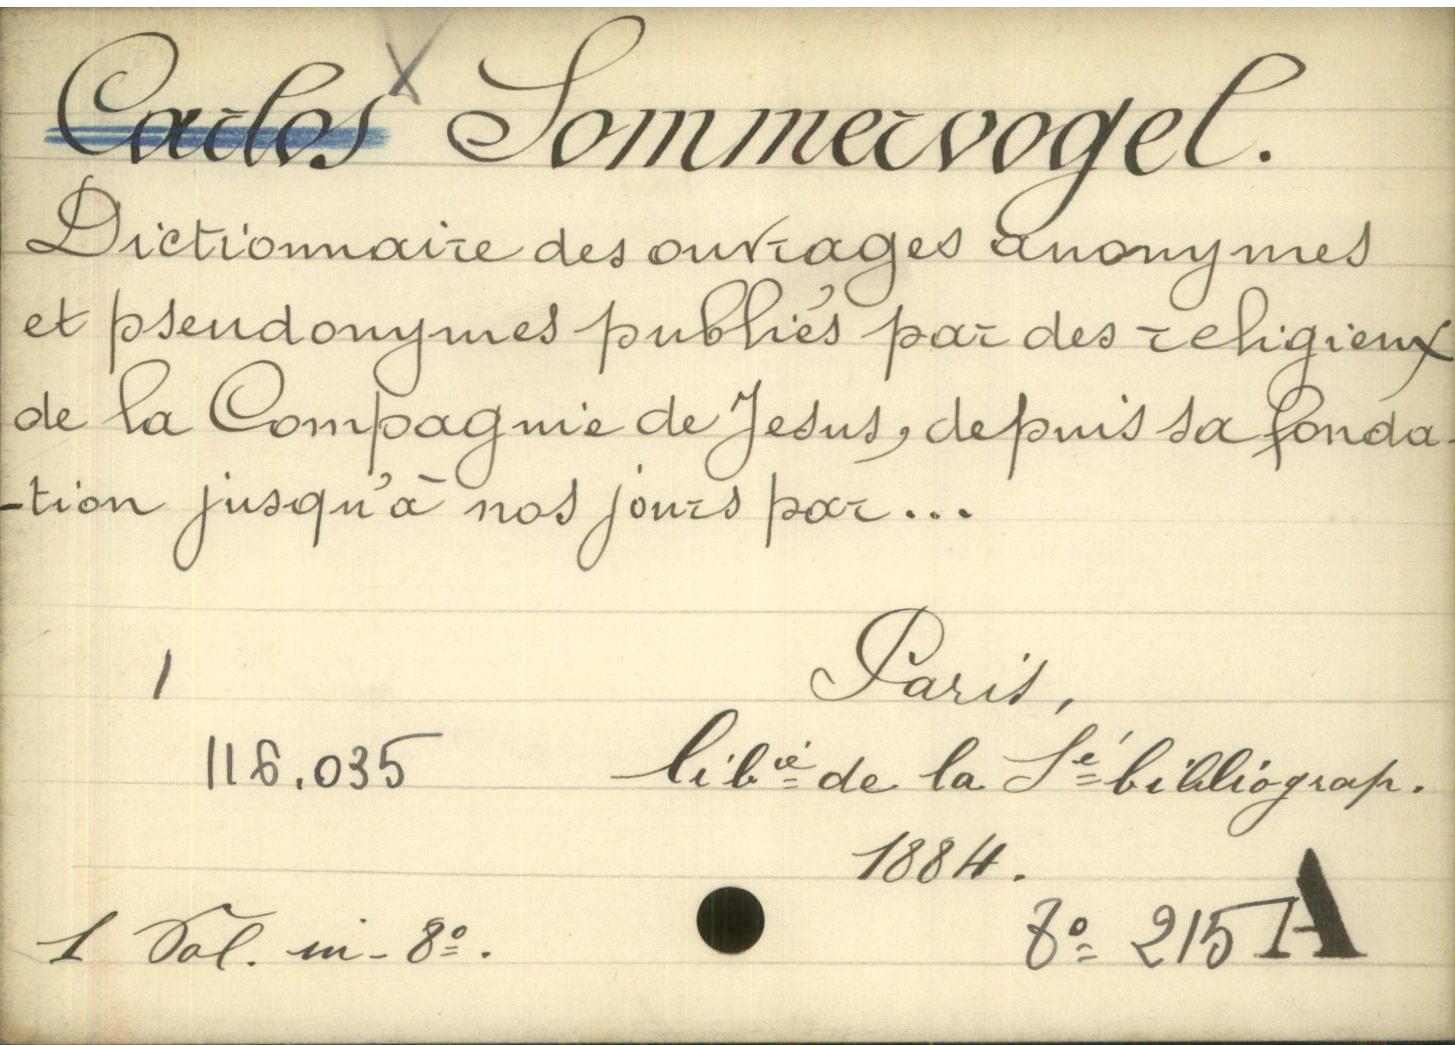 Carlos X Sommervogel.
Dictionnaire des ouvrages anonymes
et pseudonymes publiés par des religieux
de la Compagnie de Jesus, depuis sa fonda-
-tion jusqu'à nos jours par...
1
Paris,
116.035
libie de la Sé bibliograp.
1884.
1 Vol. in-8º.
8º 215 A